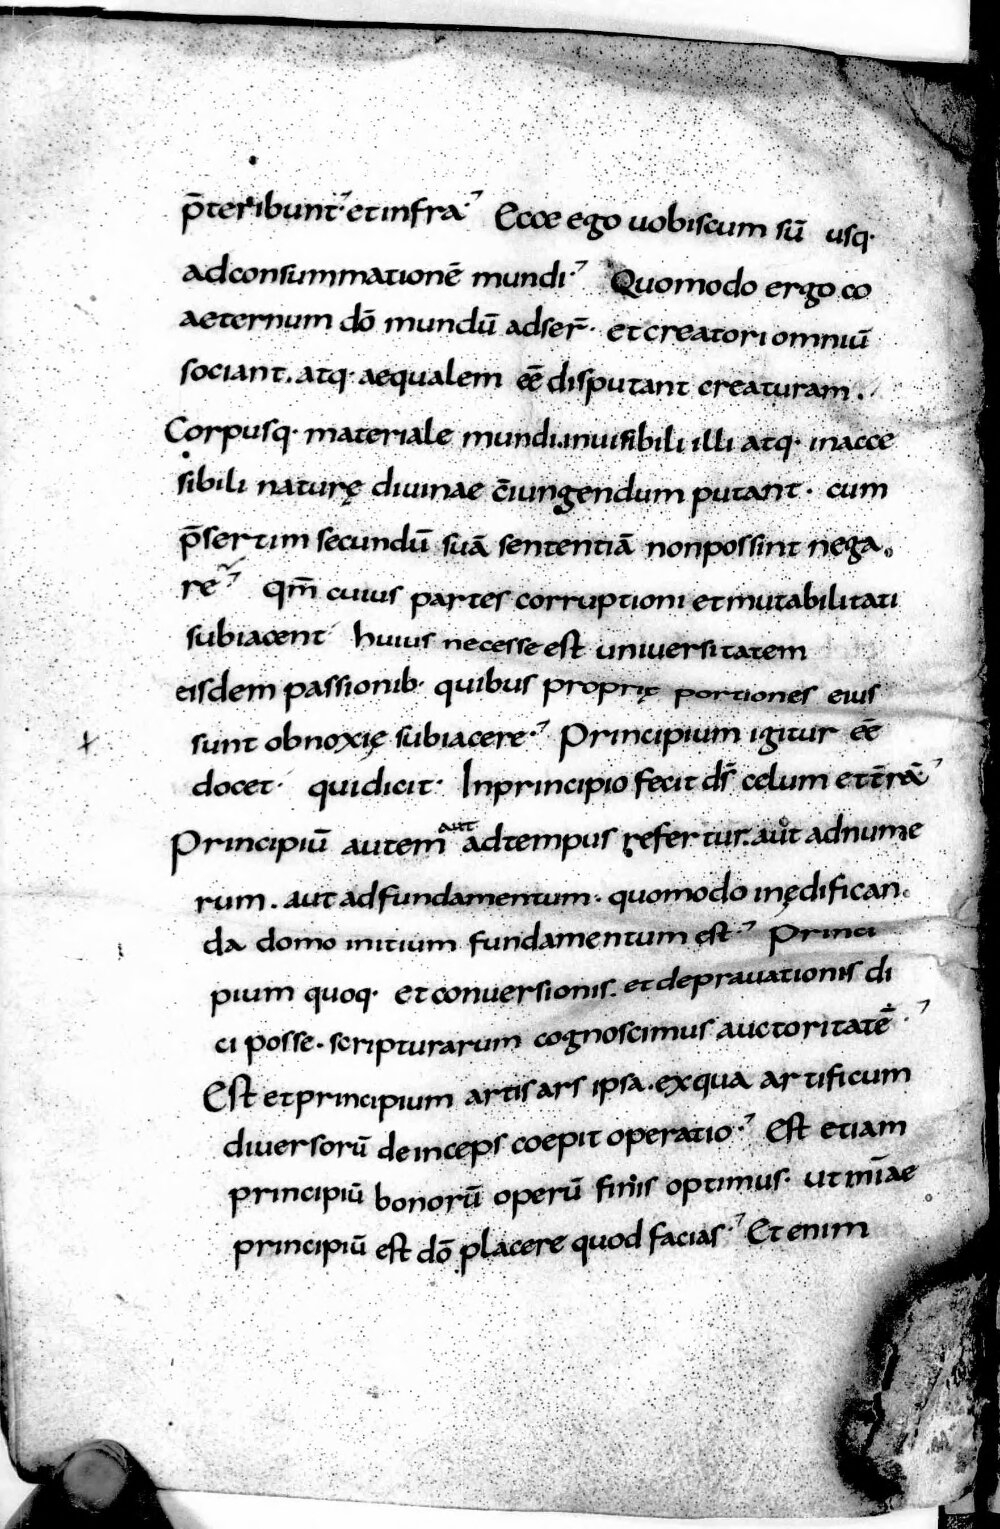 p̄teribunt·⁊ et infra·⁊ Ecce ego uobiscum sū usq·
ad consummationē mundi·⁊ Quomodo ergo co
aeternum dō mundū adser̄· et creatori omniū
sociant. atq· aequalem eē disputant creaturam.
Corpusq· materiale mundi. inuisibili illi atq· inacce
sibili naturę diuinae c̄iungendum putant· cum
p̄sertim secundū suā sententiā non possint nega
re⁊ qm̄ cuius partes corruptioni et mutabilitati
subiacent huius necesse est uniuersitatem
eisdem passionib· quibus proprię portiones eius
sunt obnoxię subiacere·⁊ Principium igitur eē
docet· qui dicit· In principio fecit ds̄ celum et t̄rā⁊
Principiū autem aut ad tempus refertur. aut ad nume
rum. aut ad fundamentum· quomodo in ędifican
da domo initium fundamentum est·⁊ Princi
pium quoq· et conuersionis. et deprauationis di
ci posse· scripturarum cognoscimus auctoritatē·⁊
Est et principium artis ars ipsa. ex qua artificum
diuersorū deinceps coepit operatio·⁊ Est etiam
principiū bonorū operū finis optimus· ut mīae
principiū est dō placere quod facias·⁊ Et enim